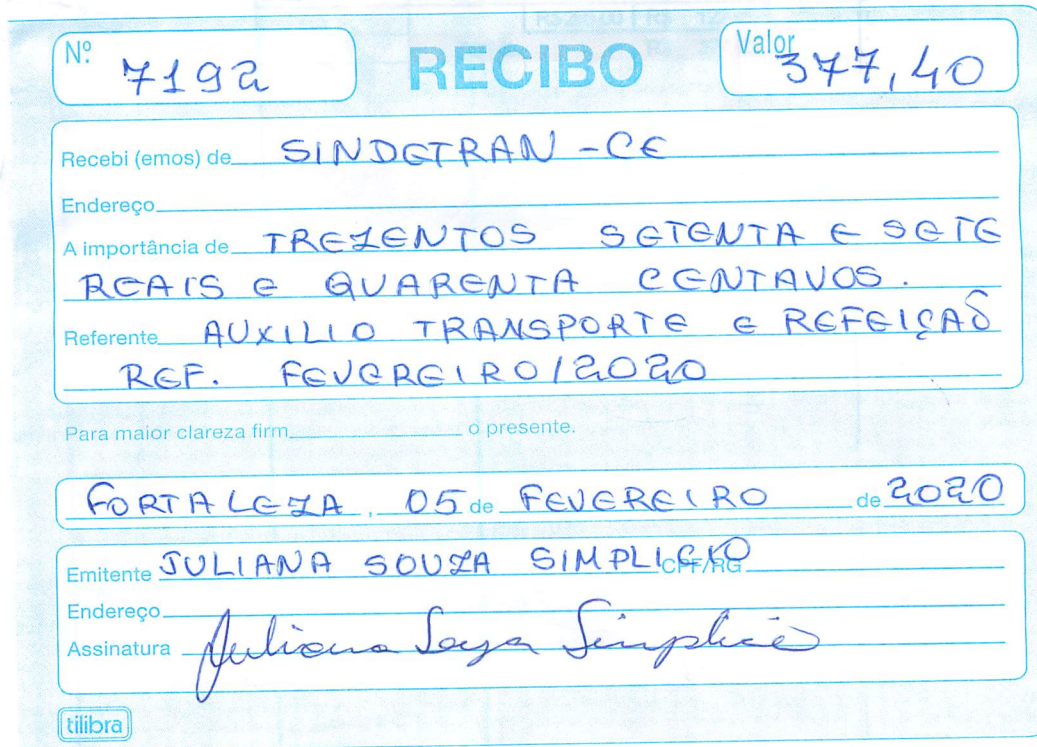 Nº 7192 RECIBO Valor 377,40
Recebi (emos) de SINDETRAN - CE
Endereço
A importância de TREZENTOS SETENTA E SETE
REAIS E QUARENTA CENTAVOS.
Referente AUXILIO TRANSPORTE E REFEIÇAÕ
REF. FEVEREIRO/2020
Para maior clareza firm o presente.
FORTALEZA, 05 de FEVEREIRO de 2020
Emitente JULIANA SOUZA SIMPLICIO CPF/RG
Endereço
Assinatura Juliana Souza Simplicio
tilibra